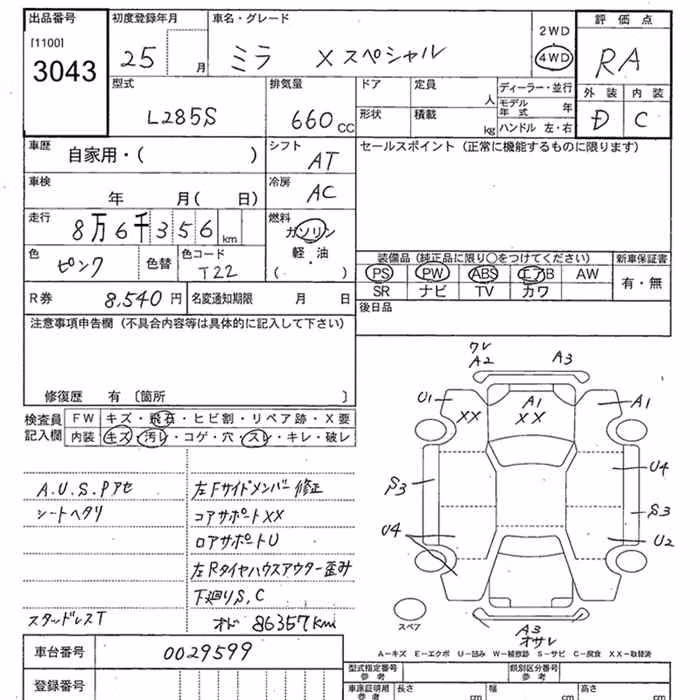 出品番号 初度登録年月 車名・グレード 評価点
[1100]
3043
25 月 ミラ Xスペシャル 2WD 4WD RA
型式 排気量 ドア 定員 人 ディーラー・並行 外装 内装
L285S 660 CC 形状 積載 kg モデル年式 年 D C
ハンドル 左・右
車歴 自家用・( ) シフト AT セールスポイント(正常に機能するものに限ります)
車検 年 月( 日) 冷房 AC
走行 8万6千356 km 燃料 ガソリン
軽・油
・
( )
色 ピンク 色替 色コード T22
装備品(純正品に限り○をつけてください) 新車保証書
PS PW ABS エアB AW 有・無
SR ナビ TV カワ
R券 8,540円 名変通知期限 月 日 後日品
注意事項申告欄(不具合内容等は具体的に記入して下さい)
修復歴 有 〔箇所 〕
検査員記入欄 FW キズ・飛石・ヒビ割・リペア跡・X要
内装 キズ・汚レ・コゲ・穴・スレ・キレ・破レ
A.U.S.Pアセ 左Fサイドメンバー修正
シートヘタリ コアサポートXX
ロアサポートU
左Rタイヤハウスアウター歪み
下廻りS,C
スタッドレスT オド 86357km
ワレ
A2 A3
U1 A1 A1
XX XX
U4
S3 S3
U4 U2
スペア A3
オサレ
A-キズ E-エクボ U-凹み W-補修跡 S-サビ C-腐食 XX-取替済
車台番号 0029599
登録番号
型式指定番号 参考 類別区分番号 参考
車庫証明用 参考 長さ cm 幅 cm 高さ cm